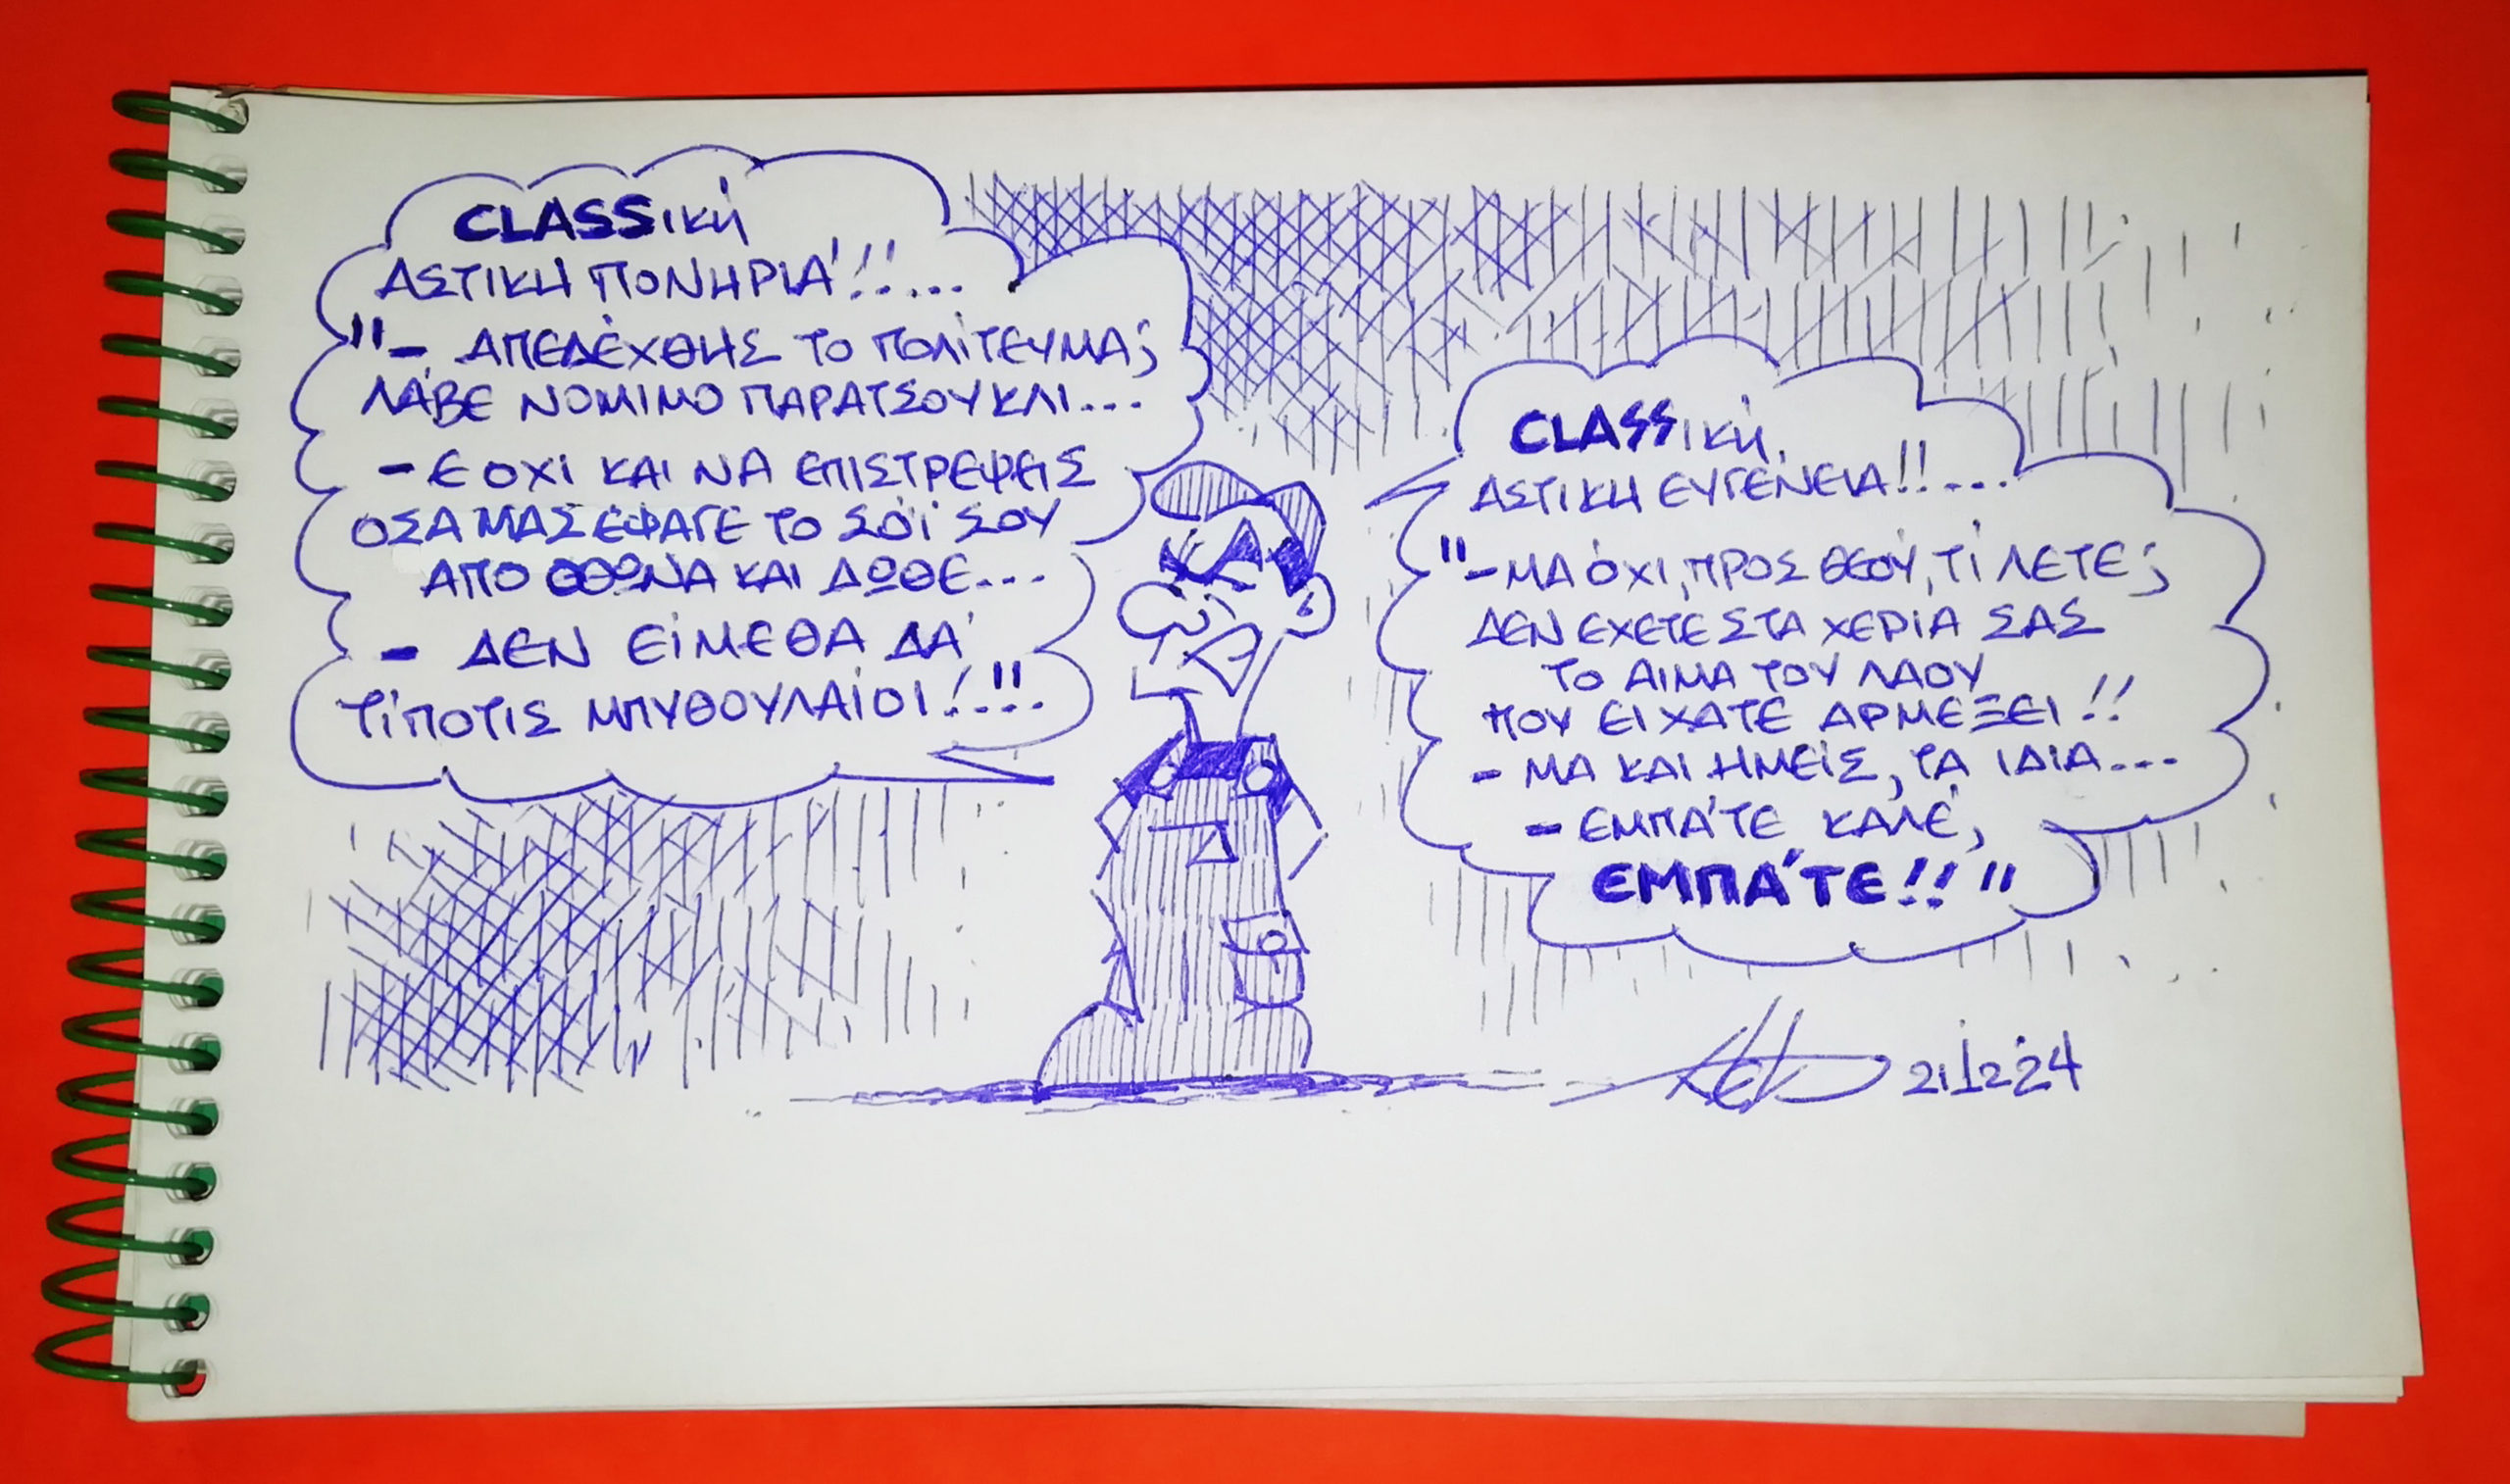 CLASSική
ΑΣΤΙΚΗ ΠΟΝΗΡΙΆ!!...
"- ΑΠΕΔΈΧΘΗΣ ΤΟ ΠΟΛΊΤΕΥΜΑ;
ΛΆΒΕ ΝΟΜΙΜΟ ΠΑΡΑΤΣΟΥΚΛΙ...
- Ε ΟΧΙ ΚΑΙ ΝΑ ΕΠΙΣΤΡΕΨΕΙΣ
ΟΣΑ ΜΑΣ ΕΦΑΓΕ ΤΟ ΣΌΪ ΣΟΥ
ΑΠΟ ΟΘΩΝΑ ΚΑΙ ΔΩΘΕ...
- ΔΕΝ ΕΊΜΕΘΑ ΔΑ'
ΤΊΠΟΤΙΣ ΜΠΥΘΟΥΛΑΊΟΙ!..!!
CLASSική
ΑΣΤΙΚΗ ΕΥΓΈΝΕΙΑ!!...
"-ΜΑ ΌΧΙ, ΠΡΟΣ ΘΕΟΎ, ΤΊ ΛΕΤΕ;
ΔΕΝ ΕΧΕΤΕ ΣΤΑ ΧΕΡΙΑ ΣΑΣ
ΤΟ ΑΙΜΑ ΤΟΥ ΛΑΟΥ
ΠΟΥ ΕΙΧΑΤΕ ΑΡΜΕΞΕΙ!!
- ΜΑ ΚΑΙ ΗΜΕΊΣ, ΤΑ ΙΔΙΑ...
- ΕΜΠΆΤΕ ΚΑΛΈ,
ΕΜΠΆΤΕ!! "
21.12.24